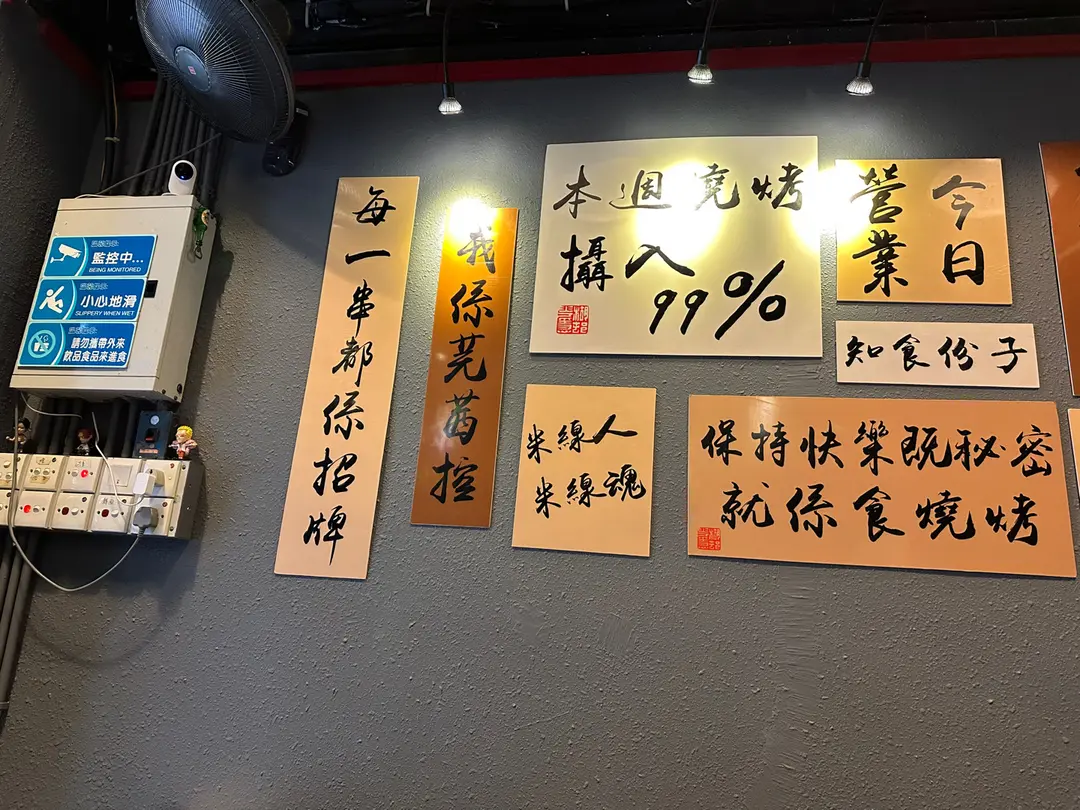 監控中...
BEING MONITORED
小心地滑
SLIPPERY WHEN WET
請勿攜帶外來
飲品食品來進食
每一串都係招牌
我係芫茜控
本週燒烤
攝入
99%
米線人
米線魂
今日
營業
知食份子
保持快樂既秘密
就係食燒烤